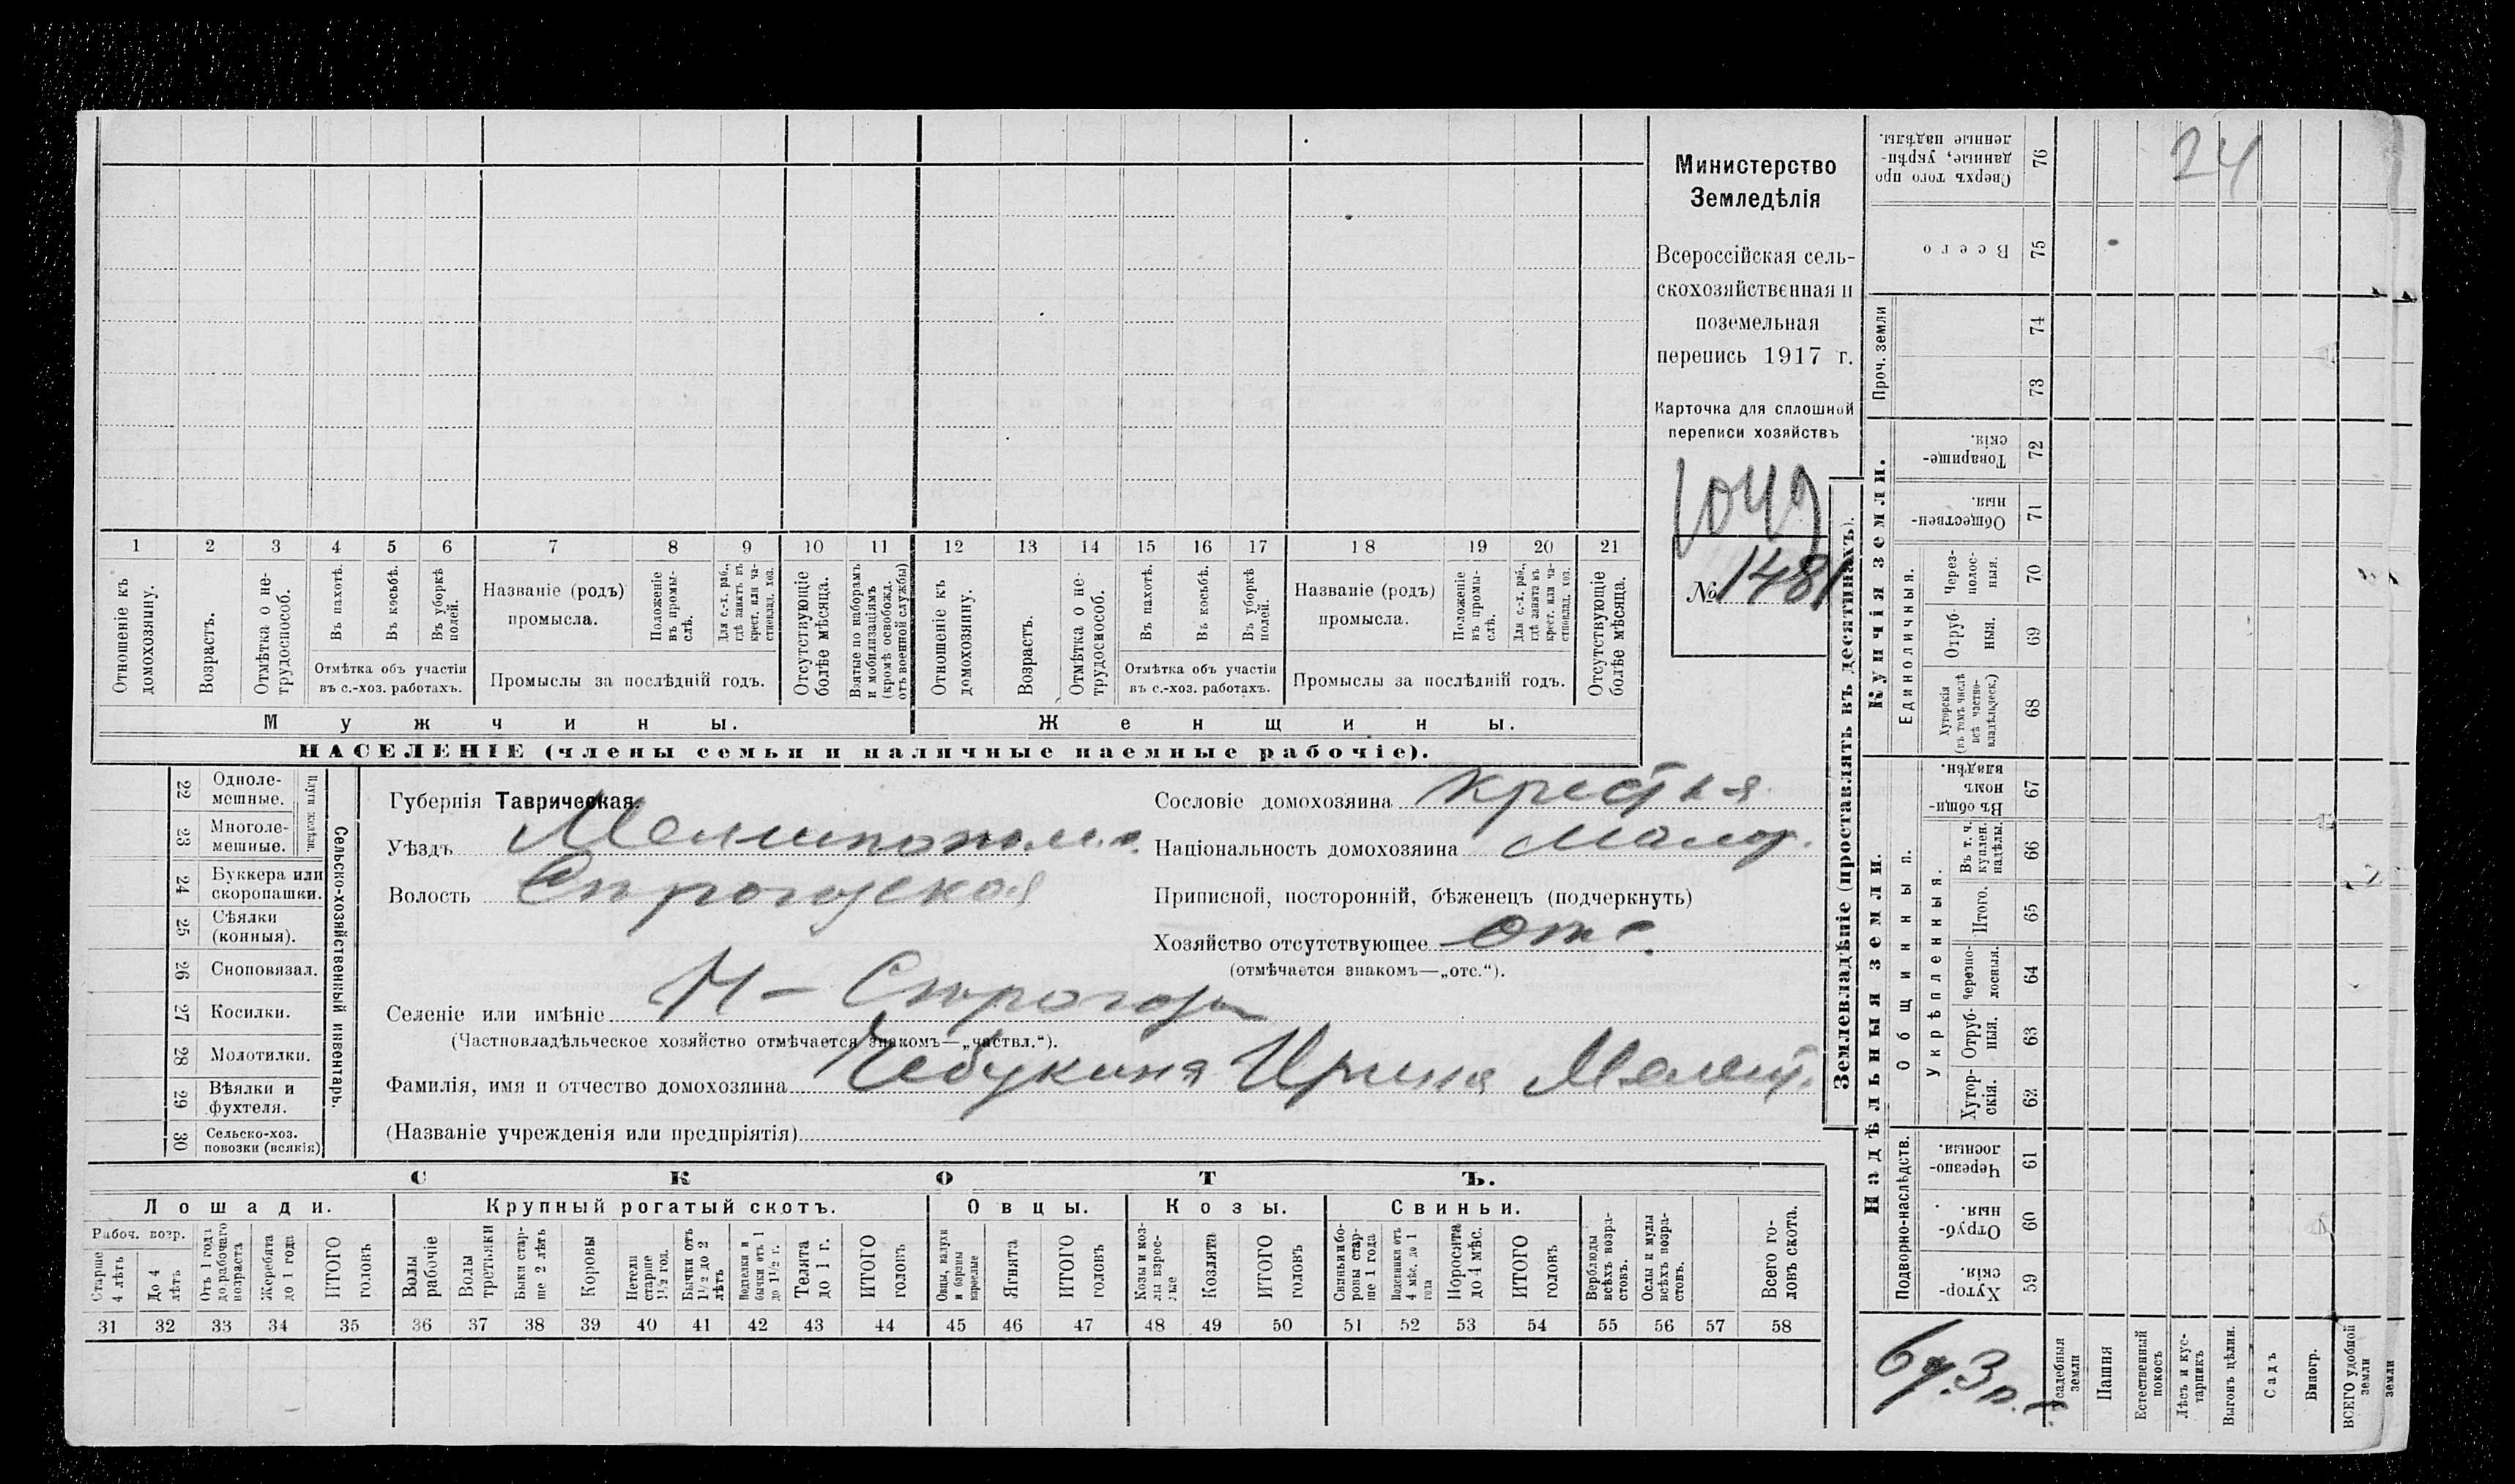 Министерство
Земледѣлія
Всероссійская сель-
скохозяйственная и
поземельная
перепись 1917 г.
Карточка для сплошной
переписи хозяйствъ
1049
№ 1481
1 2 3 4 5 6 7 8 9 10 11 12 13 14 15 16 17 18 19 20 21
Отношеніе къ домохозяину.
Возрастъ.
Отмѣтка о не-трудоспособ.
Въ пахотѣ.
Въ косьбѣ.
Въ уборкѣ полей.
Отмѣтка объ участіи
въ с.-хоз. работахъ.
Названіе (родъ)
промысла.
Положеніе въ промы-слѣ.
Для с.-х. раб., гдѣ занятъ въ крест. или ча-стновлад. хоз.
Промыслы за послѣдній годъ.
Отсутствующіе болѣе мѣсяца.
Взятые по наборамъ и мобилизаціямъ (кромѣ освобожд. отъ военной службы)
Отношеніе къ домохозяину.
Возрастъ.
Отмѣтка о не-трудоспособ.
Въ пахотѣ.
Въ косьбѣ.
Въ уборкѣ полей.
Отмѣтка объ участіи
въ с.-хоз. работахъ.
Названіе (родъ)
промысла.
Положеніе въ промы-слѣ.
Для с.-х. раб., гдѣ занята въ крест. или ча-стновлад. хоз.
Промыслы за послѣдній годъ.
Отсутствующіе болѣе мѣсяца.
Мужчины. Женщины.
НАСЕЛЕНІЕ (члены семьи и наличные наемные рабочіе).
Сельско-хозяйственный инвентарь.
Плуги желѣзн.
22 Одноле-мешные.
23 Многоле-мешные.
24 Буккера или скоропашки.
25 Сѣялки (конныя).
26 Сноповязал.
27 Косилки.
28 Молотилки.
29 Вѣялки и фухтеля.
30 Сельско-хоз. повозки (всякія)
Губернія Таврическая.
Уѣздъ Мелитопольс.
Волость Строгозская
Селеніе или имѣніе Н-Строгозы
(Частновладѣльческое хозяйство отмѣчается знакомъ—„частвл.“).
Фамилія, имя и отчество домохозяина Чебукина Ирина Мелент.
(Названіе учрежденія или предпріятія)
Сословіе домохозяина крестья.
Національность домохозяина малор.
Приписной, посторонній, бѣженецъ (подчеркнуть)
Хозяйство отсутствующее отс.
(отмѣчается знакомъ—„отс.“).
СКОТЪ.
Лошади. Крупный рогатый скотъ. Овцы. Козы. Свиньи.
Рабоч. возр.
Старше 4 лѣтъ
До 4 лѣтъ
Отъ 1 года до рабочаго возраста
Жеребята до 1 года
ИТОГО головъ
Волы рабочіе
Волы третьяки
Быки стар-ше 2 лѣтъ
Коровы
Нетели старше 1½ год.
Бычки отъ 1½ до 2 лѣтъ
Подтелки и бычки отъ 1 до 1½ г.
Телята до 1 г.
ИТОГО головъ
Овцы, валухи и бараны взрослые
Ягнята
ИТОГО головъ
Козы и коз-лы взрос-лые
Козлята
ИТОГО головъ
Свиньи и бо-ровы стар-ше 1 года
Подсвинки отъ 4 мѣс. до 1 года
Поросята до 4 мѣс.
ИТОГО головъ
Верблюды всѣхъ возра-стовъ.
Ослы и мулы всѣхъ возра-стовъ.
Всего го-ловъ скота.
31 32 33 34 35 36 37 38 39 40 41 42 43 44 45 46 47 48 49 50 51 52 53 54 55 56 57 58
Землевладѣніе (проставлять въ десятинахъ).
Купчія земли.
Надѣльныя земли.
Проч. земли
Единоличныя.
Общинныя.
Укрѣпленныя.
Подворно-наслѣдств.
Сверхъ того про данные, укрѣп-ленные надѣлы. 76
Всего 75
74
73
Товарище-скія. 72
Обществен-ныя. 71
Через-полос-ныя. 70
Отруб-ныя. 69
Хуторскія (въ томъ числѣ всѣ частно-владѣльческ.) 68
Въ общин-номъ владѣн. 67
Въ т. ч. куплен. надѣлы. 66
Итого. 65
Черезпо-лосныя. 64
Отруб-ныя. 63
Хутор-скія. 62
Черезпо-лосныя. 61
Отруб-ныя. 60
Хутор-скія. 59
24
Усадебныя земли
Пашня
Естественный покосъ
Лѣсъ и кус-тарникъ
Выгонъ цѣлин.
Садъ
Виногр.
ВСЕГО удобной земли
земли